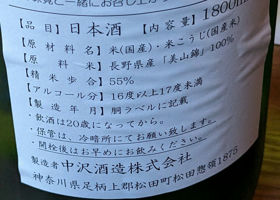 【品目】日本酒 【内容量】1800ml
【原材料名】米(国産)・米こうじ(国産米)
【原料米】長野県産「美山錦」100%
【精米歩合】55%
【アルコール分】16度以上17度未満
【製造年月】胴ラベルに記載
・飲酒は20歳になってから。
・保管は、冷暗所にてお願い致します。
・開栓後はお早めにお飲みください。
製造者 中沢酒造株式会社
神奈川県足柄上郡松田町松田惣領1875